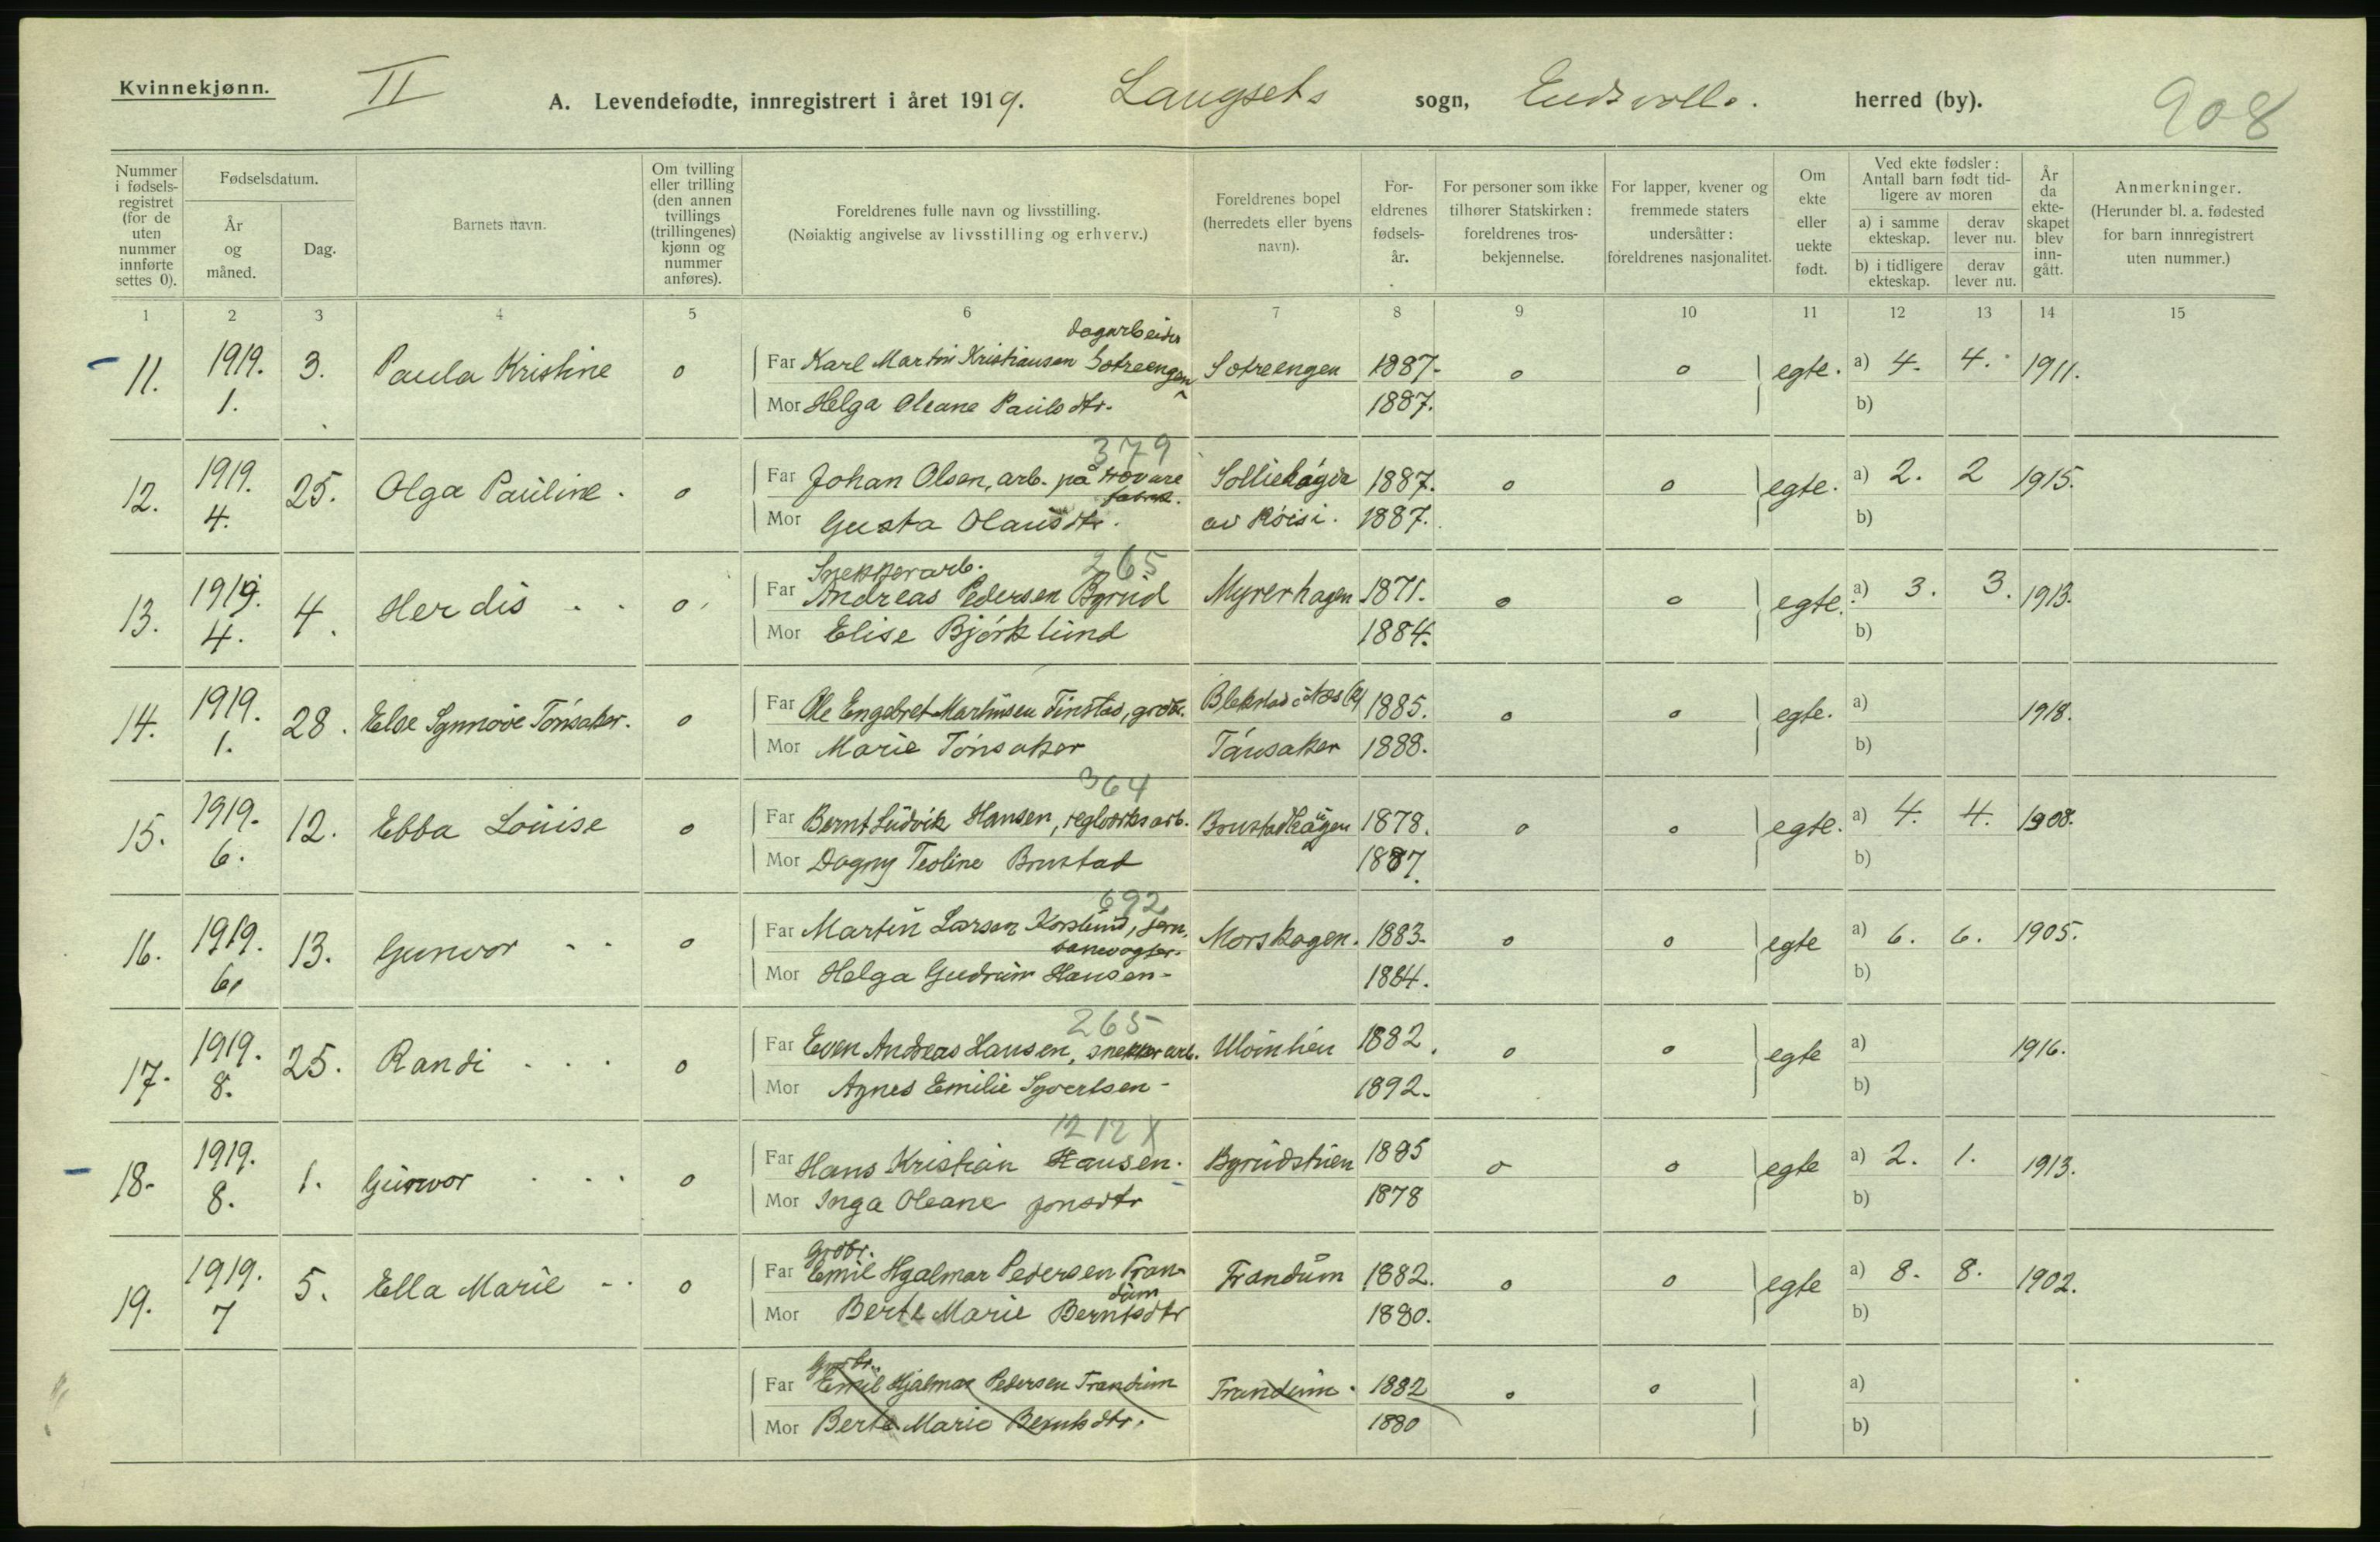 Kvinnekjønn. II A. Levendefødte, innregistrert i året 1919. Langsets sogn, Eidsvolls. herred (by). 908
Nummer i fødsels-registret (for de uten nummer innførte settes 0).
Fødselsdatum.
År og måned.
Dag.
Barnets navn.
Om tvilling eller trilling (den annen tvillings (trillingenes) kjønn og nummer anføres).
Foreldrenes fulle navn og livsstilling.
(Nøiaktig angivelse av livsstilling og erhverv.)
Foreldrenes bopel (herredets eller byens navn).
For-eldrenes fødsels-år.
For personer som ikke tilhører Statskirken: foreldrenes tros-bekjennelse.
For lapper, kvener og fremmede staters undersåtter: foreldrenes nasjonalitet.
Om ekte eller uekte født.
Ved ekte fødsler: Antall barn født tid-ligere av moren
a) i samme ekteskap.
derav lever nu.
b) i tidligere ekteskap.
derav lever nu.
År da ekte-skapet blev inn-gått.
Anmerkninger.
(Herunder bl. a. fødested for barn innregistrert uten nummer.)
1 2 3 4 5 6 7 8 9 10 11 12 13 14 15
dagarbeider
11. 1919. 3. Paula Kristine 0 Far Karl Martin Kristiansen Sotreengen Sotreengen 1887. 0 0 egte. a) 4. 4. 1911.
1. Mor Helga Oleane Paulsdtr. 1887. b)
379
12. 1919. 25. Olga Pauline. 0 Far Johan Olsen, arb. på trævare Solliehøgda 1887. 0 0 egte. a) 2. 2 1915.
fabrik.
4. Mor Gusta Olausdtr. av Röisi. 1887. b)
Snekkerarb. 265
13. 1919. 4. Herdis 0 Far Andreas Pedersen Bgrud Myrerhagen 1871. 0 0 egte. a) 3. 3. 1913.
4. Mor Elise Björklund 1884. b)
14. 1919. 28. Else Synnöve Tönsaker. 0 Far Ole Engebret Martinsen Finstad, grdbr. Blekstad i Næs 1885. 0 0 egte. a) 1918.
1. Mor Marie Tönsaker Tönsaker 1888. b)
364
15. 1919. 12. Ebba Louise 0 Far Bernt Ludvik Hansen, teglverksarb. Brustadhaugen 1878. 0 0 egte. a) 4. 4. 1908.
6. Mor Dagny Teoline Brustad 1887. b)
692
16. 1919. 13. Gunvor 0 Far Martin Larsen Korslund, jern. Morskogen. 1883. 0 0 egte a) 6. 6. 1905.
banevogter.
6. Mor Helga Gudrun Hansen 1884. b)
265
17. 1919. 25. Randi 0 Far Even Andreas Hansen, snekkerarb. 1882. 0 0 egte a) 1916.
8. Mor Agnes Emilie Syvertsen 1892. b)
1212 X
18. 1919. 1. Gunvor 0 Far Hans Kristian Hansen. Bgrudstuen 1885 0 0 egte a) 2. 1. 1913.
8. Mor Inga Oleane Jonsdtr 1878 b)
Grdbr.
19. 1919. 5. Ella Marie 0 Far Emil Hjalmar Pedersen Tran- Trandum 1882. 0 0 egte a) 8. 8. 1902.
dum
7 Mor Berte Marie Berntsdtr 1880. b)
Grdbr.
Far Emil Hjalmar Pedersen Trandum Trandum. 1882 0 0 a)
Mor Berte Marie Berntsdtr. 1880 b)